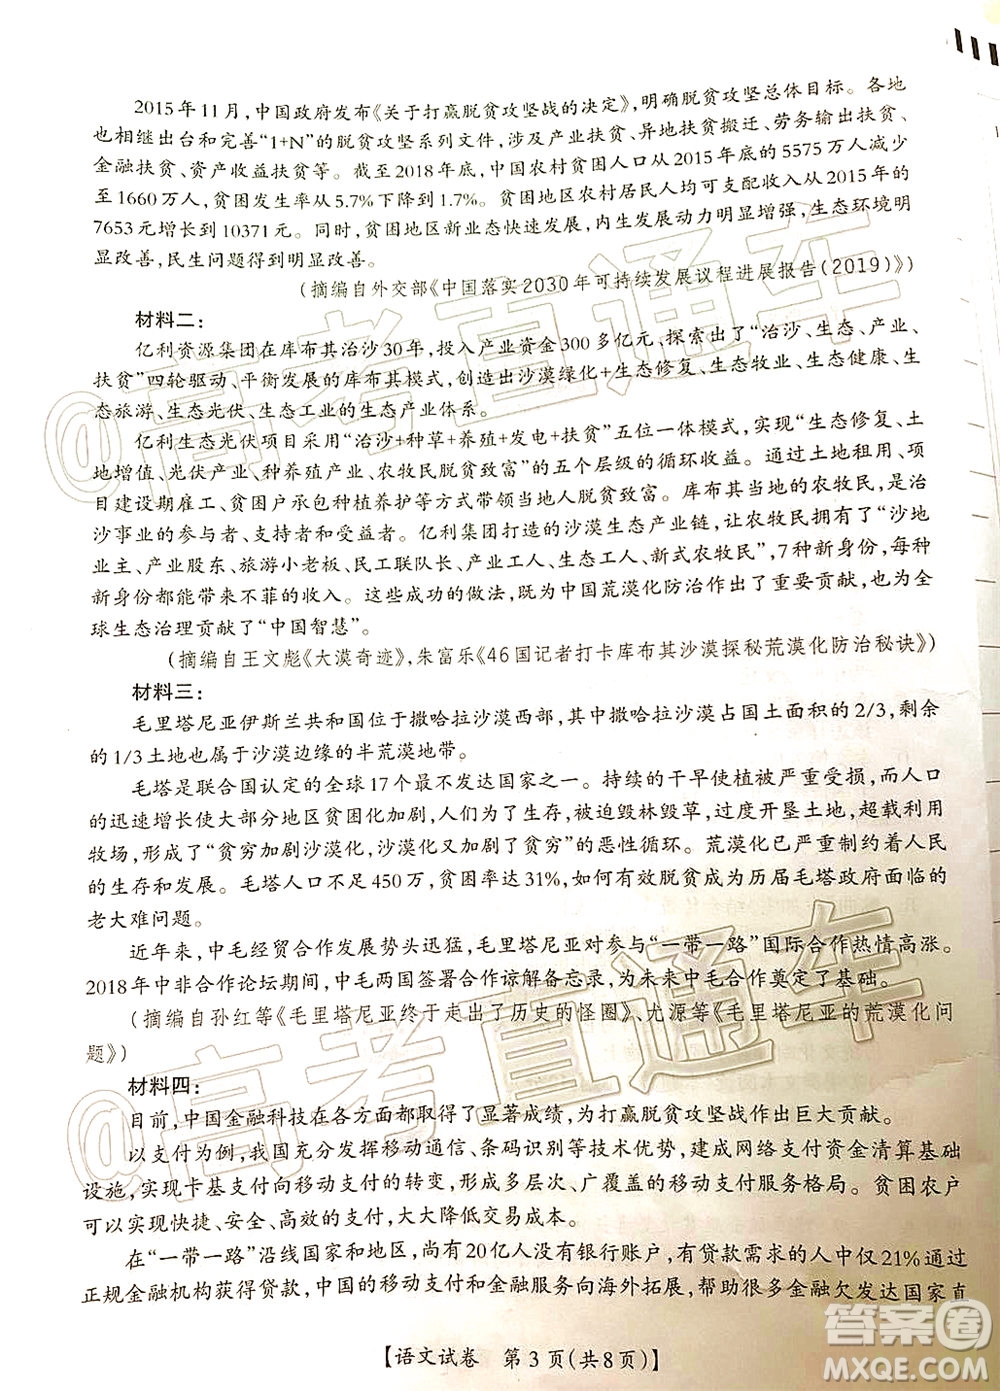 2015年11月,中国政府发布《关于打赢脱贫攻坚战的决定》,明确脱贫攻坚总体目标。各地
也相继出台和完善“1+N”的脱贫攻坚系列文件,涉及产业扶贫、异地扶贫搬迁、劳务输出扶贫、
金融扶贫、资产收益扶贫等。截至2018年,中国农村贫困人口从2015年的5575万人减少
至1660万人,贫困发生率从5.7%下降到1.7%。贫困地区农村居民人均可支配收入从2015年的
7653元增长到10371元。同时,贫困地区新业态快速发展,内生发展动力明显增强,生态环境明
显改善,民生问题得到明显改善。
(摘编自外交部《中国落实2030年可持续发展议程进展报告(2019)》)
材料二:
亿利资源集团在库布其治沙30年,投入产业资金300多亿元,探索出了“治沙、生态、产业、
扶贫”四轮驱动、平衡发展的库布其模式,创造出沙漠绿化+生态修复、生态牧业、生态健康、生
态旅游、生态光伏、生态工业的生态产业体系。
亿利生态光伏项目采用“治沙+种草+养殖+发电+扶贫”五位一体模式,实现“生态修复、土
地增值、光伏产业、种养殖产业、农牧民脱贫致富”的五个层级的循环收益。通过土地租用、项
目建设期雇工、贫困户承包种植养护等方式带领当地人脱贫致富。库布其当地的农牧民,是治
沙事业的参与者、支持者和受益者。亿利集团打造的沙漠生态产业链,让农牧民拥有了“沙地
业主、产业股东、旅游小老板、民工联队长、产业工人、生态工人、新式农牧民”,7种新身份,每种
新身份都能带来不菲的收入。这些成功的做法,既为中国荒漠化防治作出了重要贡献,也为全
球生态治理贡献了“中国智慧”。
(摘编自王文彪《大漠奇迹》,朱富乐《46国记者打卡库布其沙漠探秘荒漠化防治秘诀》)
材料三:
毛里塔尼亚伊斯兰共和国位于撒哈拉沙漠西部,其中撒哈拉沙漠占国土面积的2/3,剩余
的1/3土地也属于沙漠边缘的半荒漠地带。
毛塔是联合国认定的全球17个最不发达国家之一。持续的干旱使植被严重受损,而人口
的迅速增长使大部分地区贫困化加剧,人们为了生存,被迫毁林毁草,过度开垦土地,超载利用
牧场,形成了“贫穷加剧沙漠化,沙漠化又加剧了贫穷”的恶性循环。荒漠化已严重制约着人民
的生存和发展。毛塔人口不足450万,贫困率达31%,如何有效脱贫成为历届毛塔政府面临的
老大难问题。
近年来,中毛经贸合作发展势头迅猛,毛里塔尼亚对参与“一带一路”国际合作热情高涨。
2018年中非合作论坛期间,中毛两国签署合作谅解备忘录,为未来中毛合作奠定了基础。
(摘编自孙红等《毛里塔尼亚终于走出了历史的怪圈》、尤源等《毛里塔尼亚的荒漠化问
题》)
材料四:
目前,中国金融科技在各方面都取得了显著成绩,为打赢脱贫攻坚战作出巨大贡献。
以支付为例,我国充分发挥移动通信、条码识别等技术优势,建成网络支付资金清算基础
设施,实现卡基支付向移动支付的转变,形成多层次、广覆盖的移动支付服务格局。贫困农户
可以实现快捷、安全、高效的支付,大大降低交易成本。
在“一带一路”沿线国家和地区,尚有20亿人没有银行账户,有贷款需求的人中仅21%通过
正规金融机构获得贷款,中国的移动支付和金融服务向海外拓展,帮助很多金融欠发达国家直
【语文试卷 第3页(共8页)】
@高考直通车
@高考直通车
答案圈
MXQE.COM